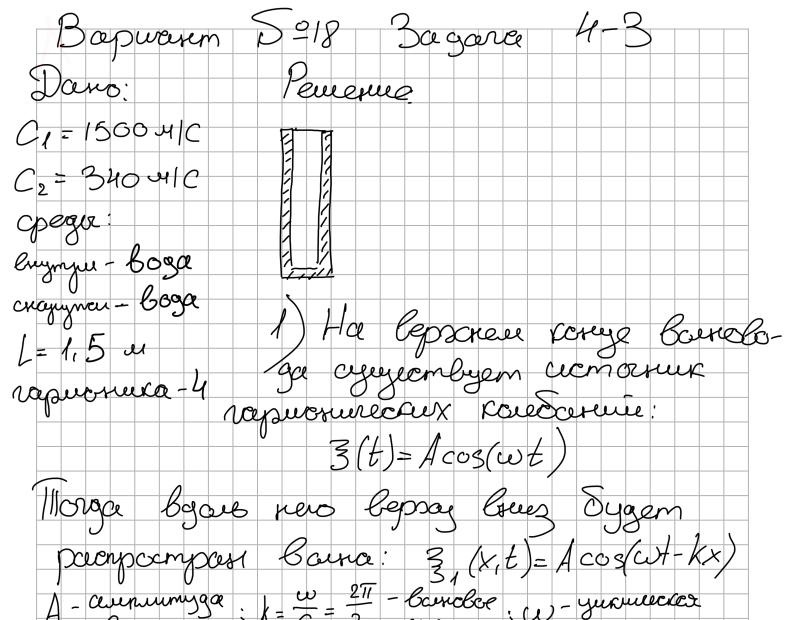 Вариант №18 Задача 4-3
Дано: Решение
C₁ = 1500 м/с
C₂ = 340 м/с
среды:
внутри - вода
снаружи - вода
L = 1,5 м
гармоника - 4
1) На верхнем конце волново-
да существует источник
гармонических колебаний:
ξ(t) = A cos(ωt)
Тогда вдоль него сверху вниз будет
распростран волна: ξ₁(x,t) = A cos(ωt - kx)
A - амплитуда ; k = ω/c = 2π/λ - волновое ; ω - циклическая